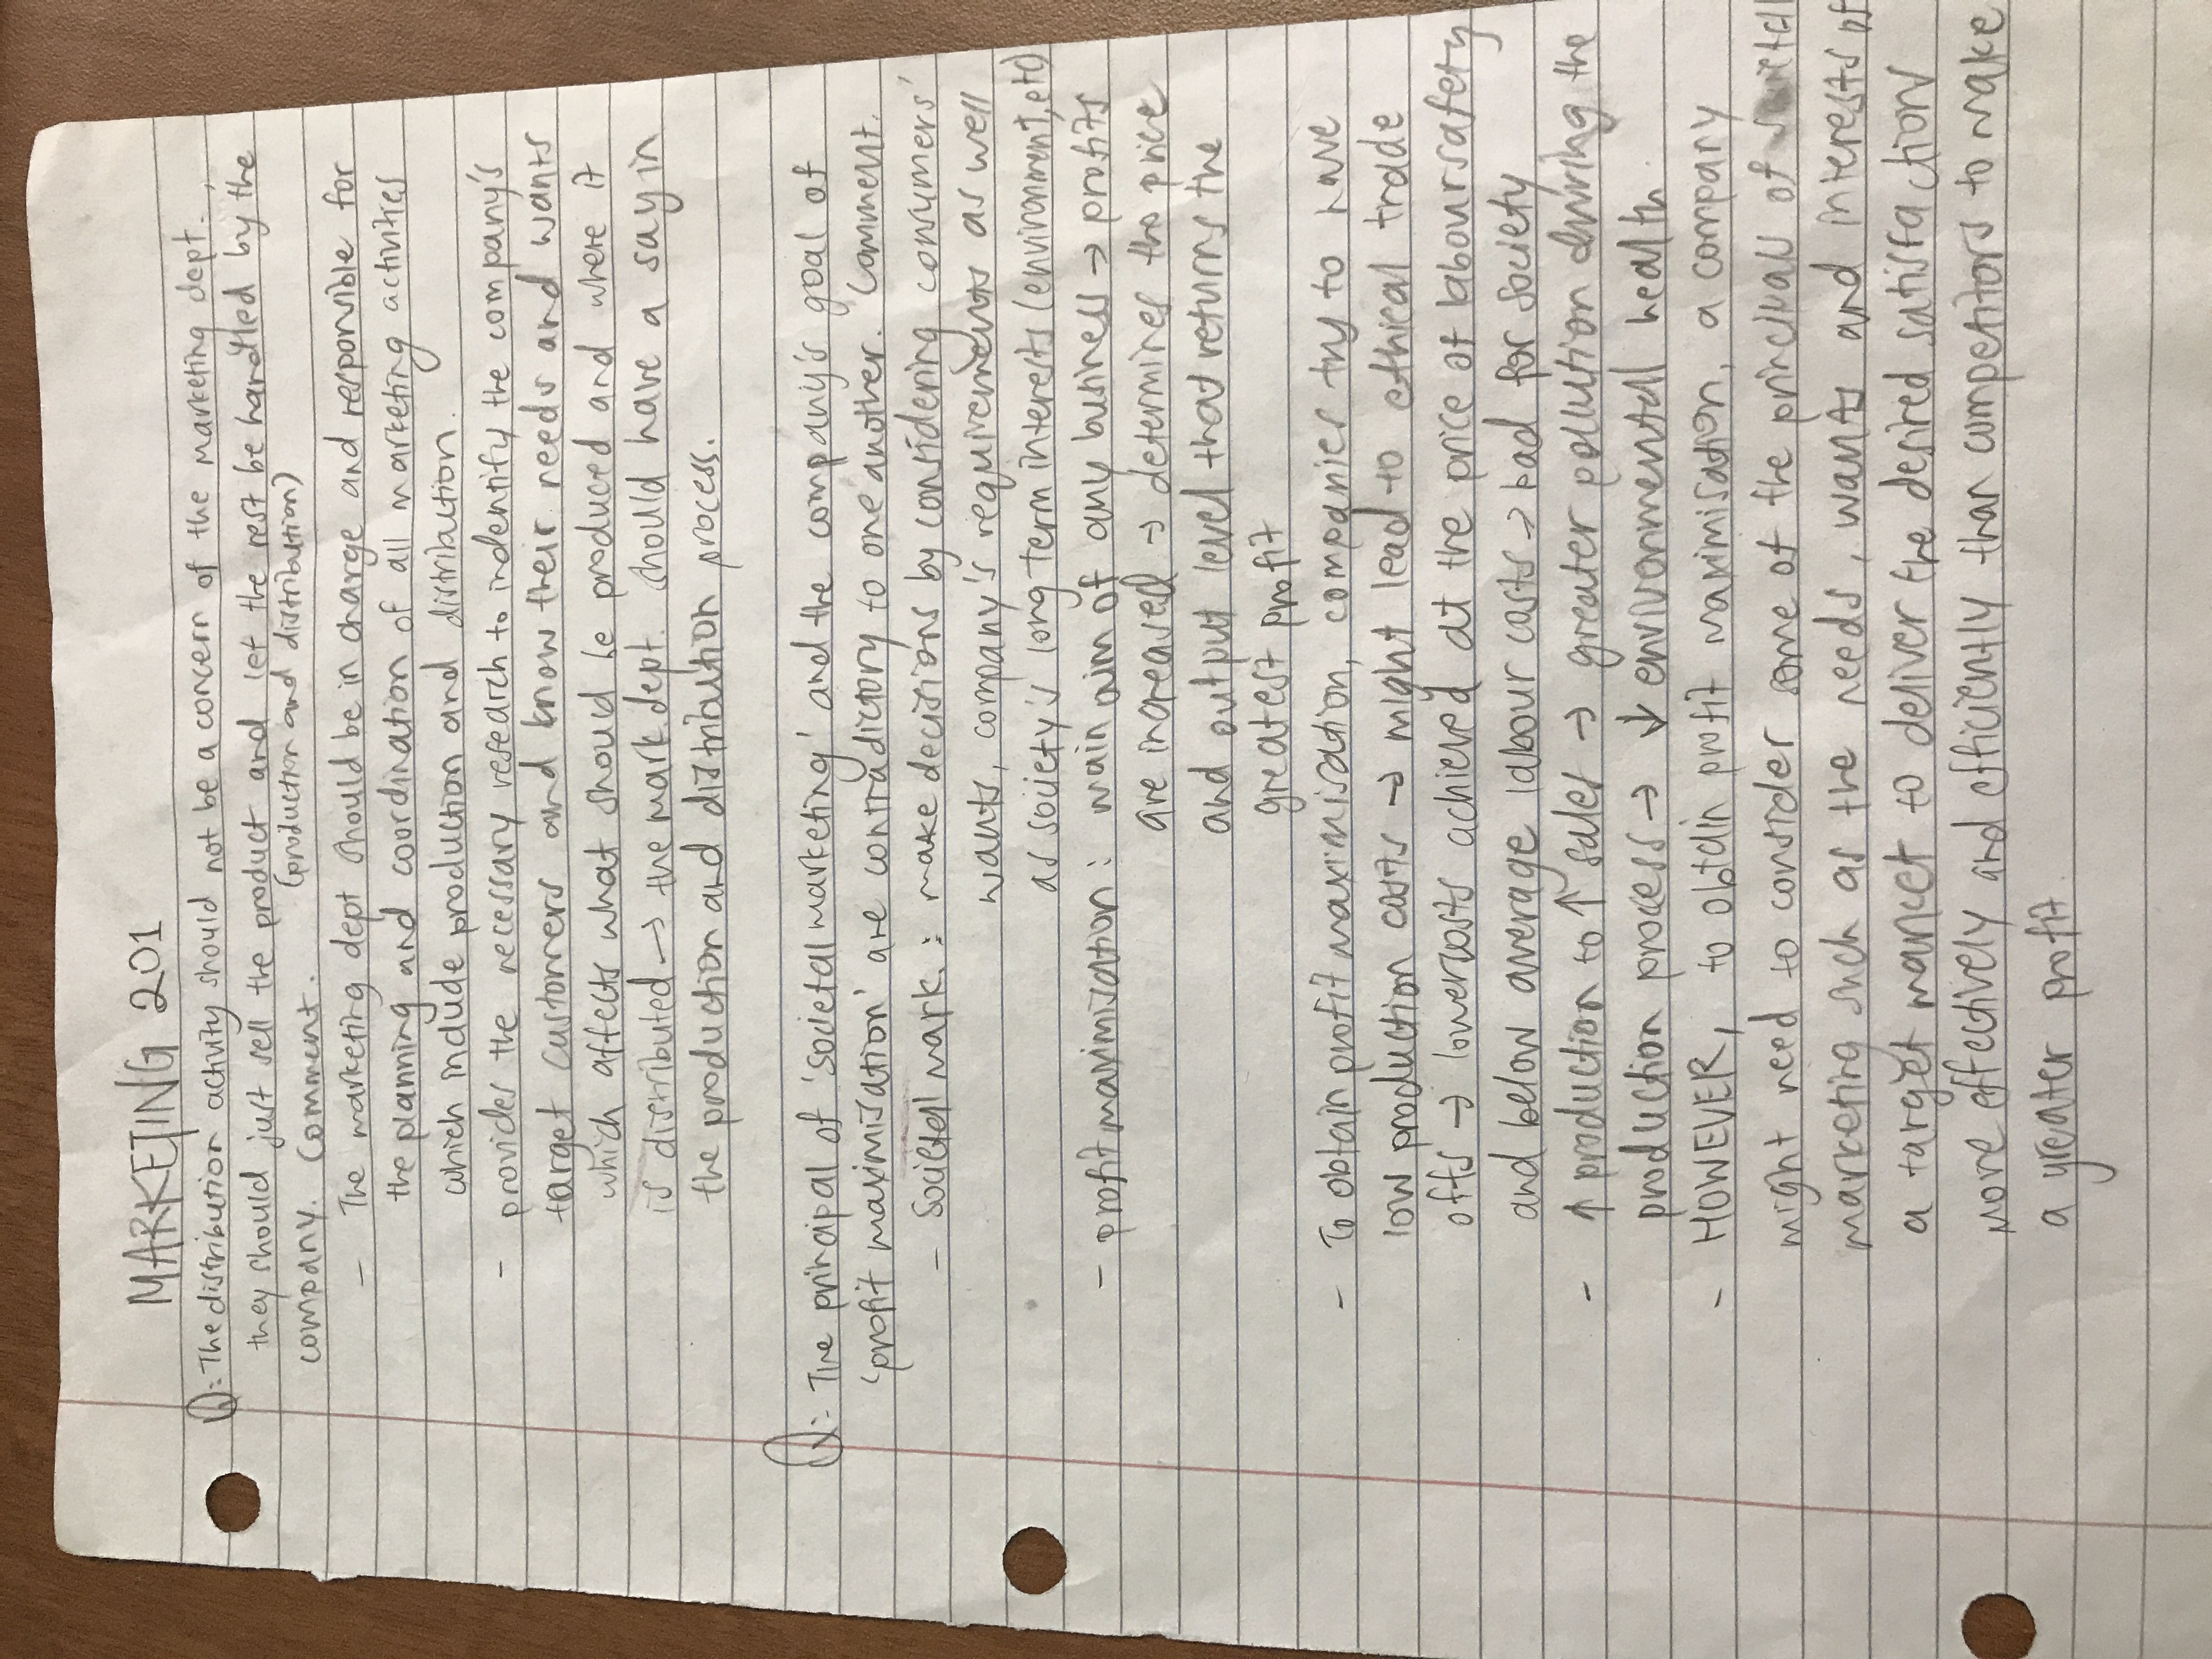 MARKETING 201
Q: The distribution activity should not be a concern of the marketing dept.,
they should just sell the product and let the rest be handled by the
(production and distribution)
company. Comment.
- The marketing dept should be in charge and responsible for
the planning and coordination of all marketing activities
which include production and distribution.
- provides the necessary research to indentify the company's
target customers and know their needs and wants
which affects what should be produced and where it
is distributed → the mark dept. should have a say in
the production and distribution process.
Q: The principal of 'societal marketing' and the company's goal of
'profit maximisation' are contradictory to one another. Comment.
- societal mark.: make decisions by considering consumers'
wants, company's requirements as well
as society's long term interests (environment, etc)
- profit maximisation: main aim of any business → profits
are increased → determines the price
and output level that returns the
greatest profit
- To obtain profit maximisation, companies try to have
low production costs → might lead to ethical trade
offs → lower costs achieved at the price of labour safety
and below average labour costs → bad for society
- ↑ production to ↑ sales → greater pollution during the
production process → ↓ environmental health.
- HOWEVER, to obtain profit maximisation, a company
might need to consider some of the principals of societal
marketing such as the needs, wants and interests of
a target market to deliver the desired satisfaction
more effectively and efficiently than competitors to make
a greater profit